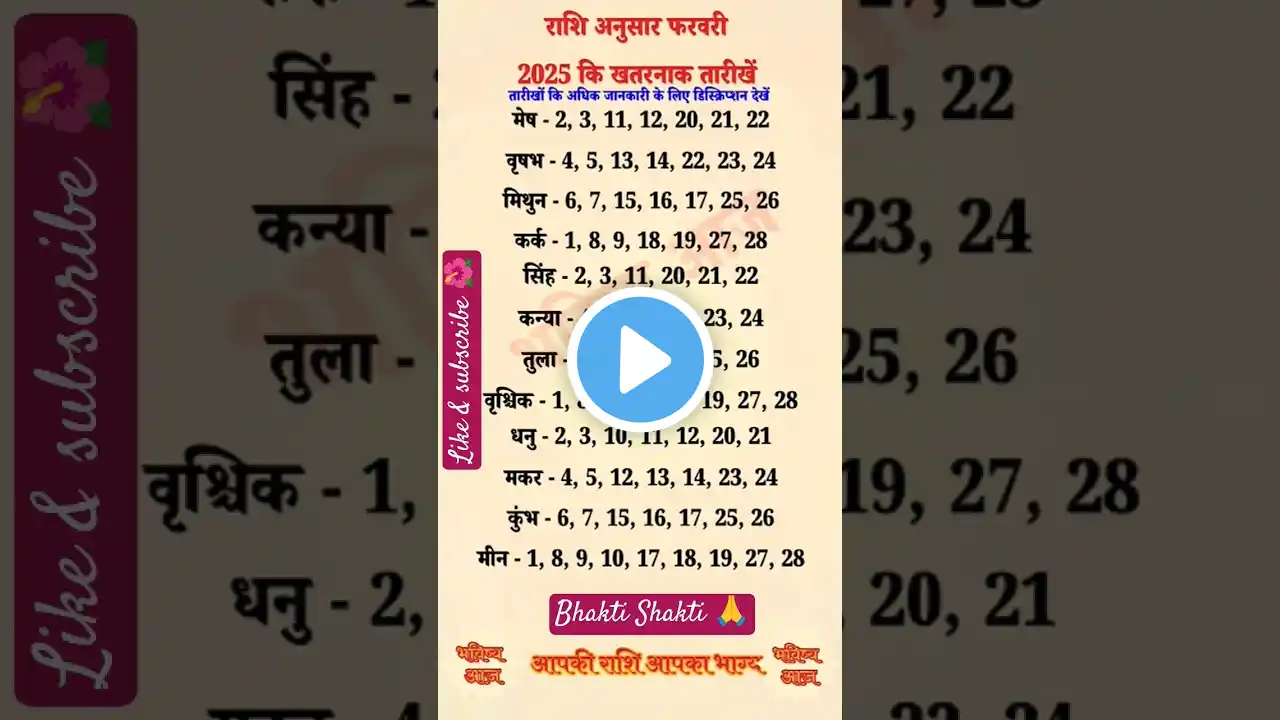 राशि अनुसार फरवरी
2025 कि खतरनाक तारीखें
तारीखों कि अधिक जानकारी के लिए डिस्क्रिप्शन देखें
मेष - 2, 3, 11, 12, 20, 21, 22
वृषभ - 4, 5, 13, 14, 22, 23, 24
मिथुन - 6, 7, 15, 16, 17, 25, 26
कर्क - 1, 8, 9, 18, 19, 27, 28
सिंह - 2, 3, 11, 20, 21, 22
कन्या - 23, 24
तुला - 26
वृश्चिक - 1, 19, 27, 28
धनु - 2, 3, 10, 11, 12, 20, 21
मकर - 4, 5, 12, 13, 14, 23, 24
कुंभ - 6, 7, 15, 16, 17, 25, 26
मीन - 1, 8, 9, 10, 17, 18, 19, 27, 28
Like & subscribe
Bhakti Shakti 🙏
भविष्य
आज
आपकी राशि आपका भाग्य
भविष्य
आज
Like & subscribe
सिंह - 21, 22
कन्या - 23, 24
तुला - 25, 26
वृश्चिक - 1, 19, 27, 28
धनु - 2, 20, 21